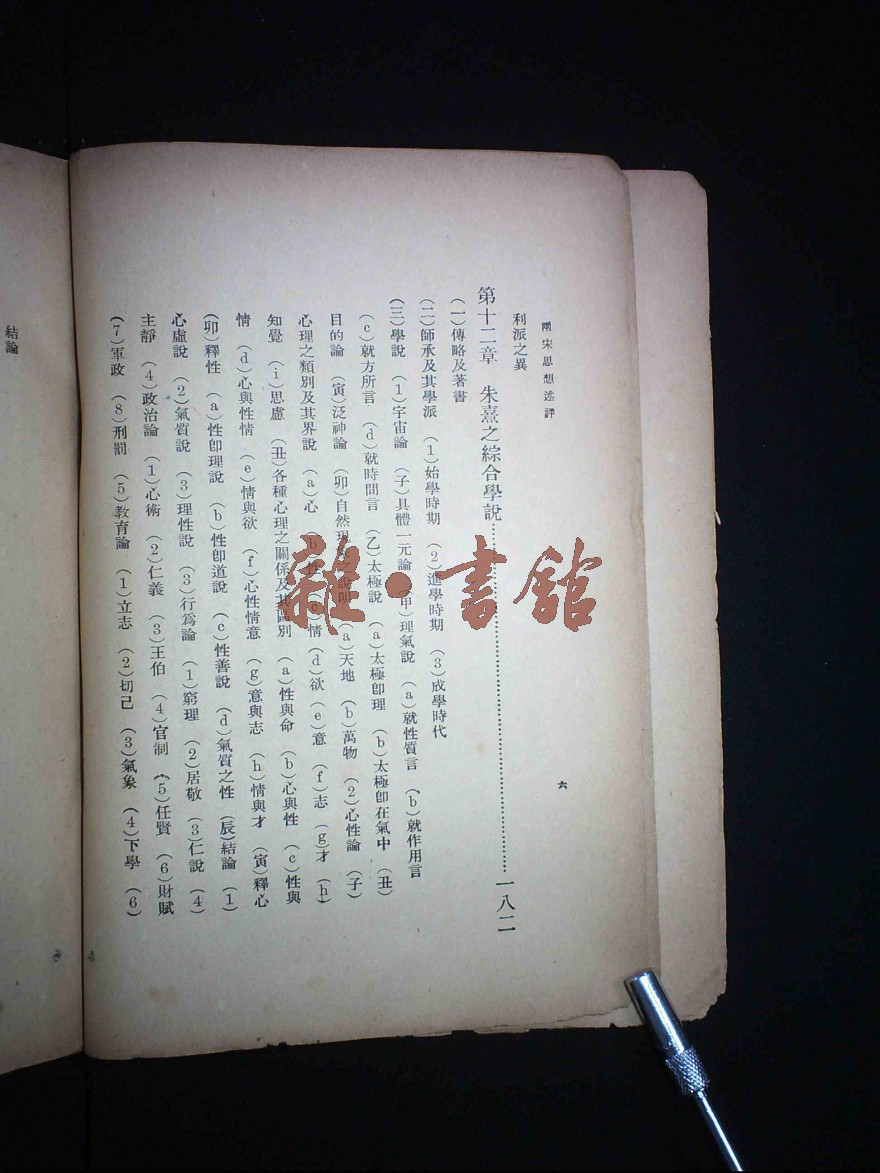 兩宋思想述評
六
利派之異
第十二章 朱熹之綜合學說…………一八二
(一)傳略及著書
(二)師承及其學派 (1)始學時期 (2)進學時期 (3)成學時代
(三)學說 (1)宇宙論 (子)具體一元論 (甲)理氣說 (a)就性質言 (b)就作用言
(c)就方所言 (d)就時間言 (乙)太極說 (a)太極卽理 (b)太極卽在氣中 (丑)
目的論 (寅)泛神論 (卯)自然現象之說明 (a)天地 (b)萬物 (2)心性論 (子)
心理之類別及其界說 (a)心 (b)性 (c)情 (d)欲 (e)意 (f)志 (g)才 (h)
知覺 (i)思慮 (丑)各種心理之關係及其區別 (a)性與命 (b)心與性 (c)性與
情 (d)心與性情 (e)情與欲 (f)心性情意 (g)意與志 (h)情與才 (寅)釋心
(卯)釋性 (a)性卽理說 (b)性卽道說 (c)性善說 (d)氣質之性 (辰)結論 (1)
心虛說 (2)氣質說 (3)理性說 (3)行爲論 (1)窮理 (2)居敬 (3)仁說 (4)
主靜 (4)政治論 (1)心術 (2)仁義 (3)王伯 (4)官制 (5)任賢 (6)財賦
(7)軍政 (8)刑罰 (5)教育論 (1)立志 (2)切己 (3)氣象 (4)下學 (6)
結論
雜·書館